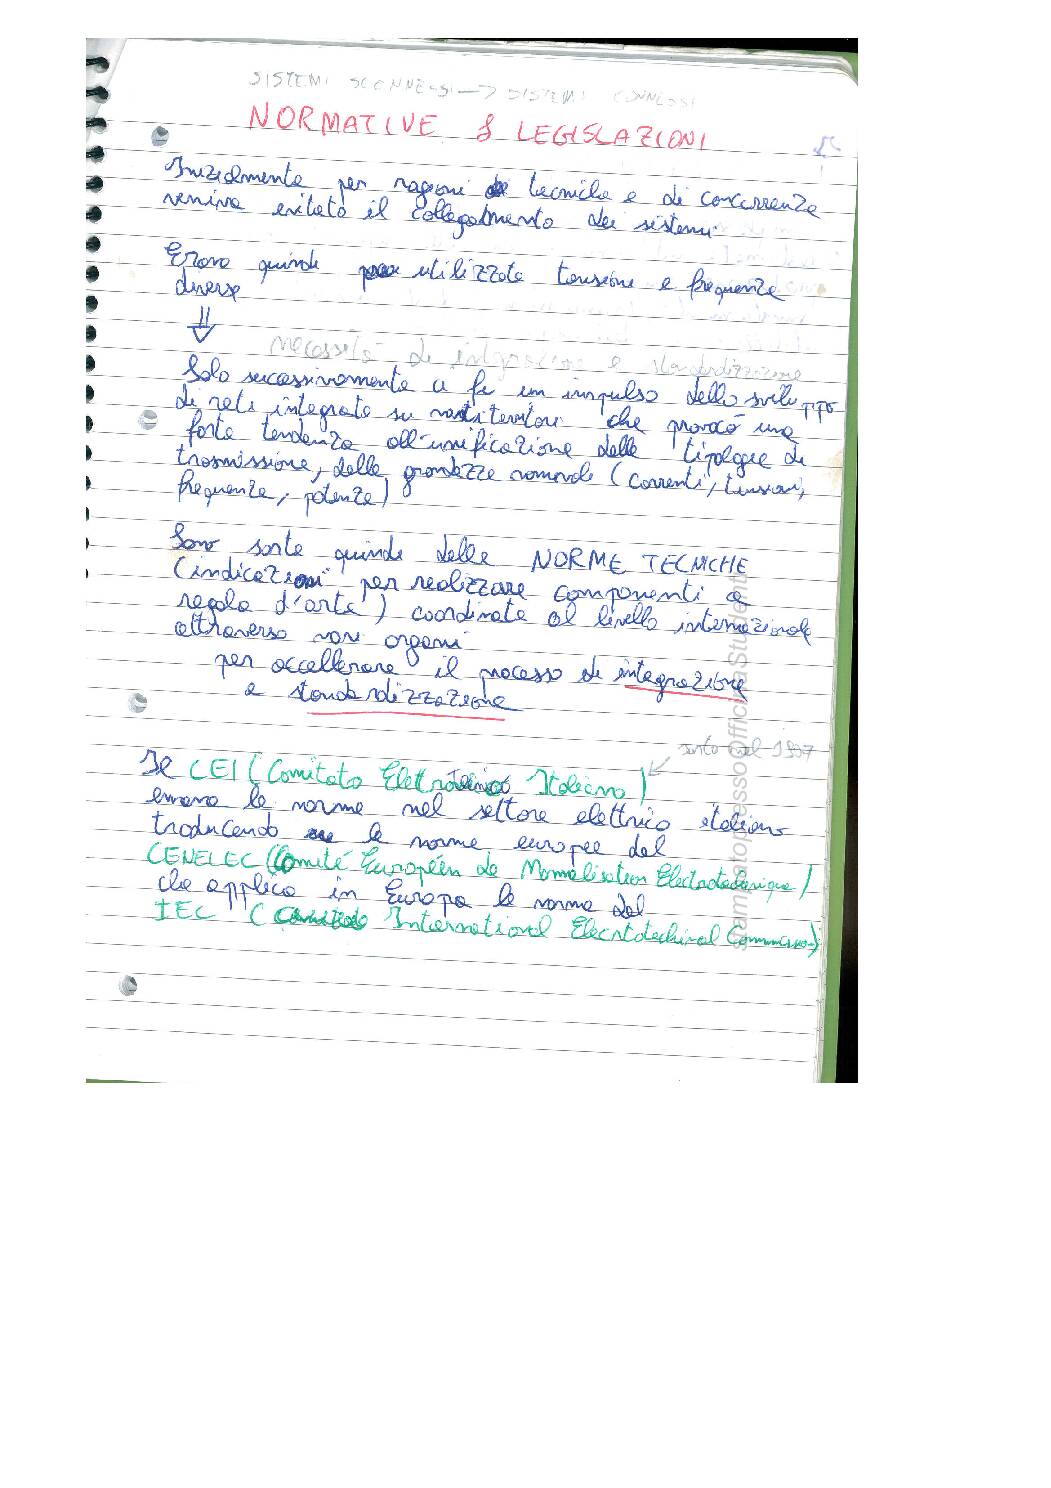 SISTEMI SCONNESSI → SISTEMI CONNESSI
NORMATIVE & LEGISLAZIONI
Inizialmente per ragioni tecniche e di concorrenza
veniva evitato il collegamento dei sistemi
Erano quindi utilizzate tensione e frequenze
diverse
necessità di integrazione e standardizzazione
Solo successivamente ci fu un impulso dello sviluppo
di reti integrate su vasti territori che provocò una
forte tendenza all'unificazione delle tipologie di
trasmissione, delle grandezze nominali (correnti, tensioni,
frequenze, potenze)
Sono sorte quindi delle NORME TECNICHE
(indicazioni per realizzare componenti a
regola d'arte) coordinate al livello internazionale
attraverso vari organi
per accellerare il processo di integrazione
e standardizzazione
sorto nel 1907
Il CEI (Comitato Elettrotecnico Italiano)
emana le norme nel settore elettrico italiano
traducendo le norme europee del
CENELEC (Comité Européen de Normalisation Electrotechnique)
che applica in Europa le norme del
IEC ( International Elecrtotechinal Commission)
stampatopressoOfficinaStudenti